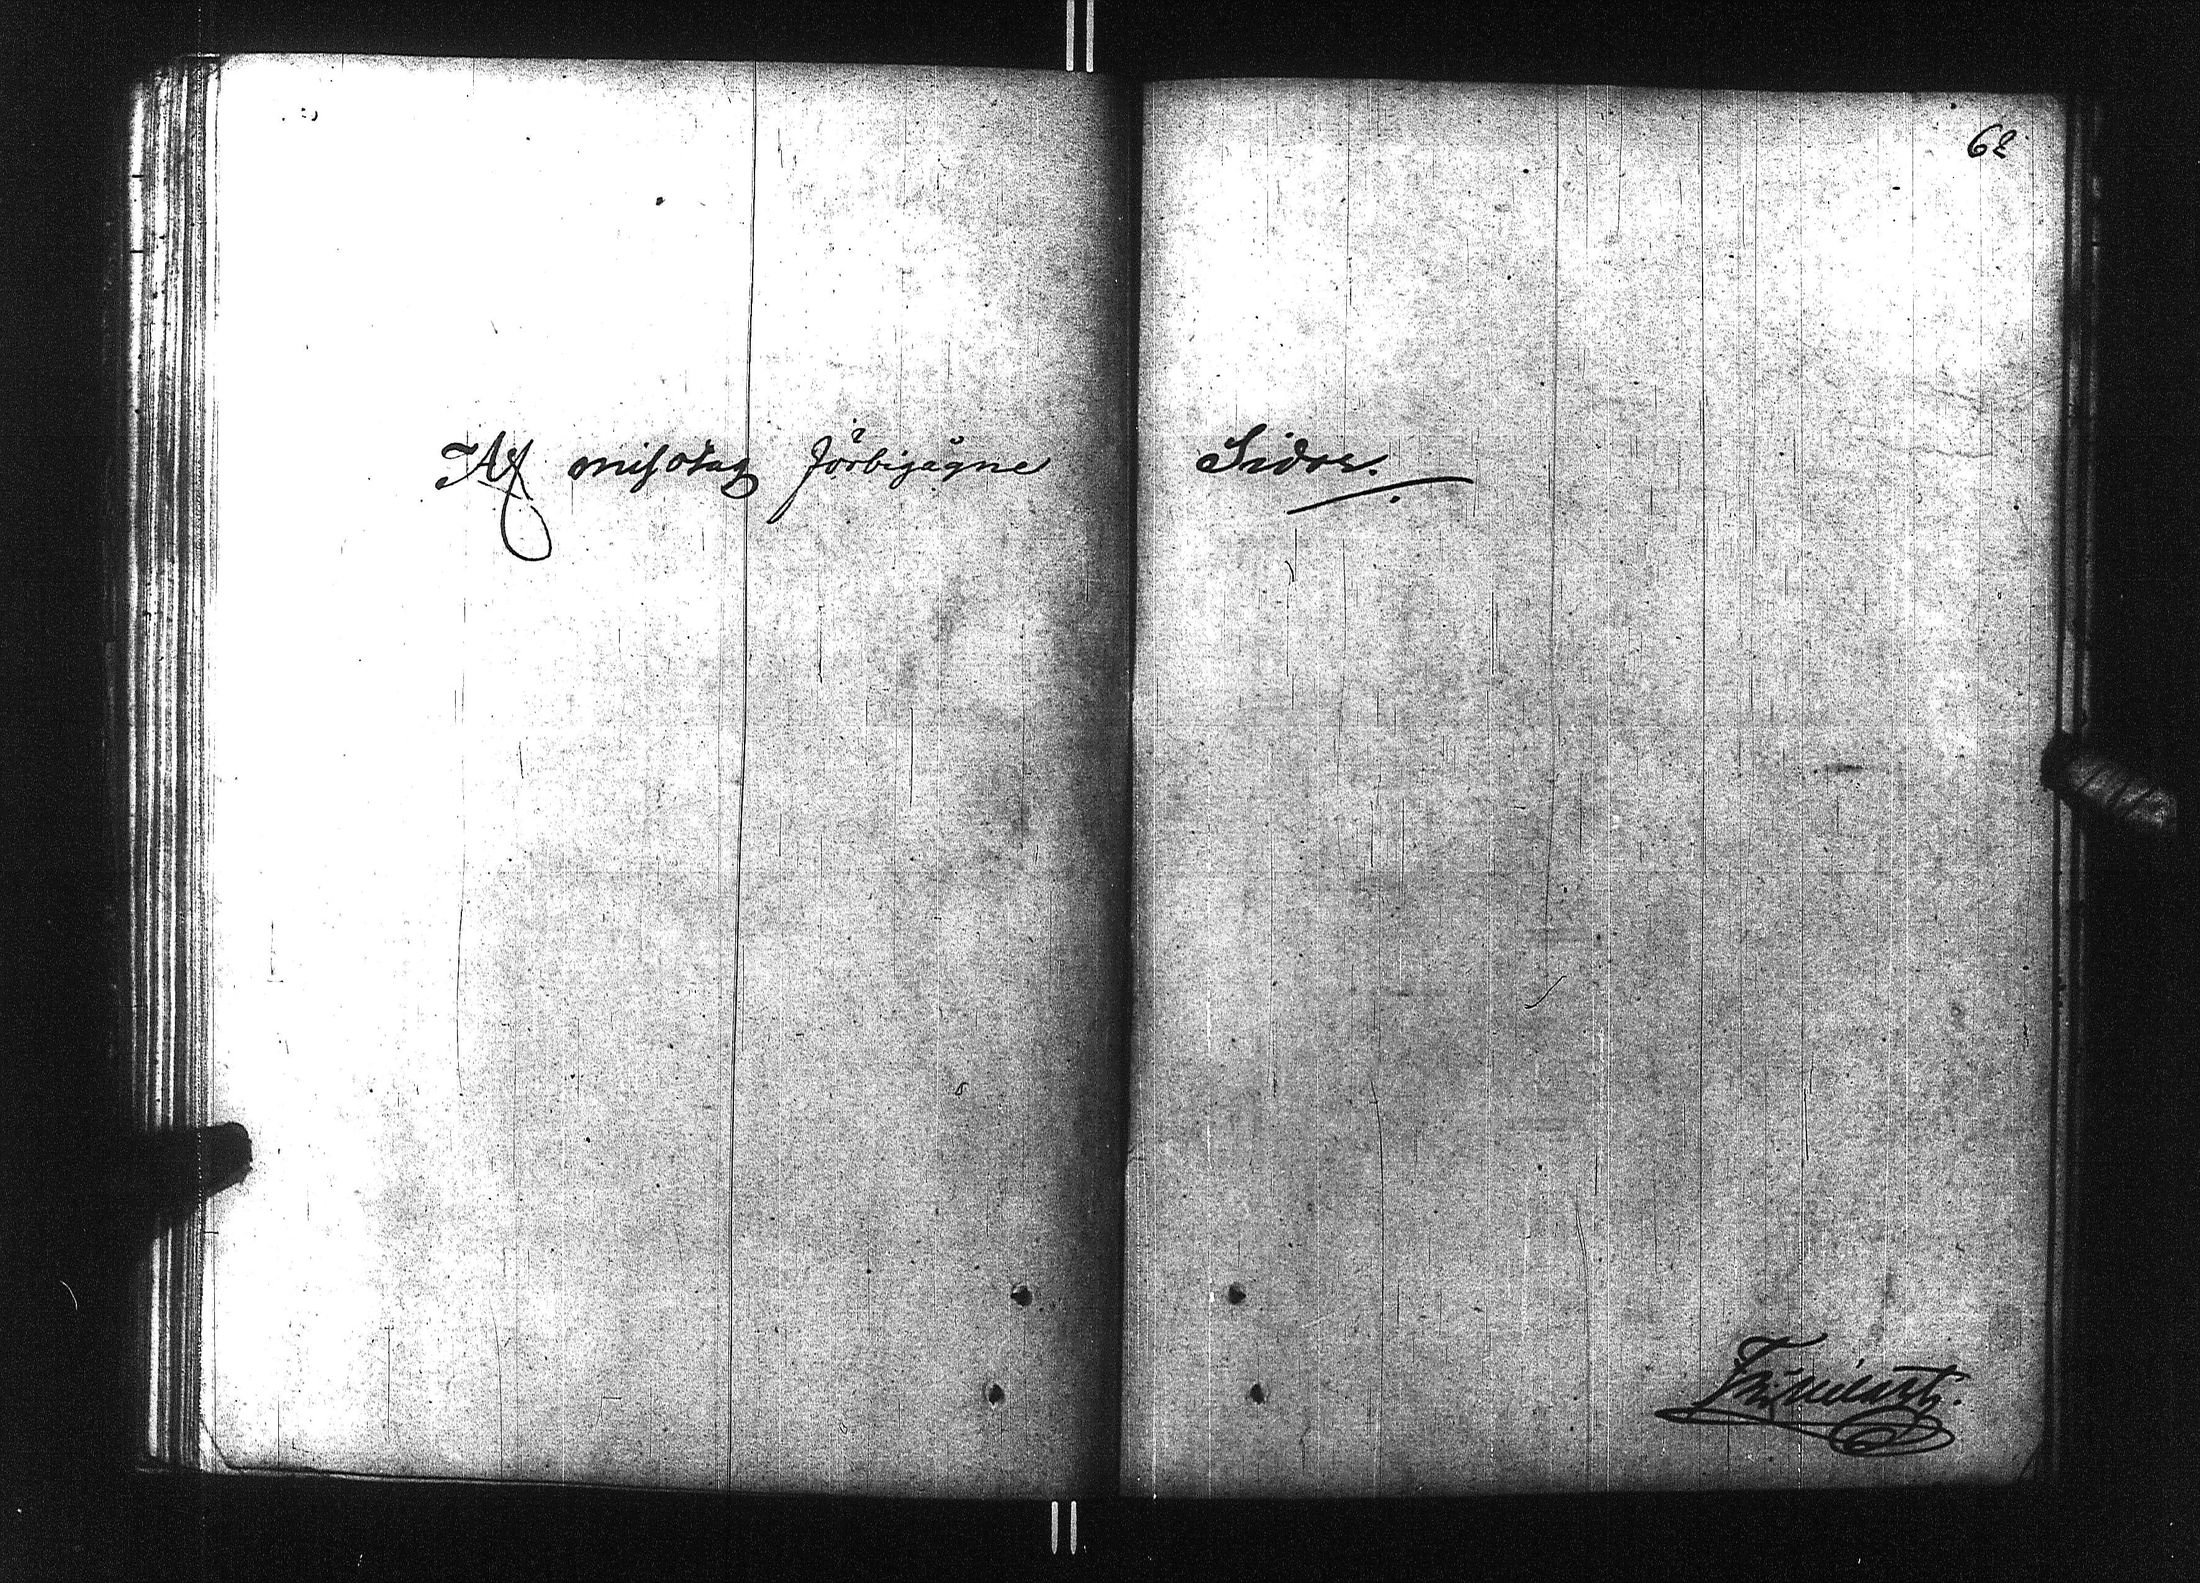 62
Af misstag förbigågne Sidor.